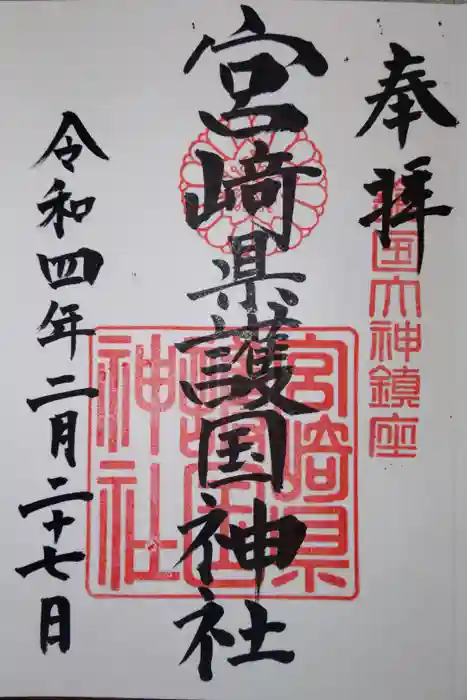 奉拝
護国大神鎮座
宮﨑県護国神社
宮崎県護国神社
令和四年二月二十七日